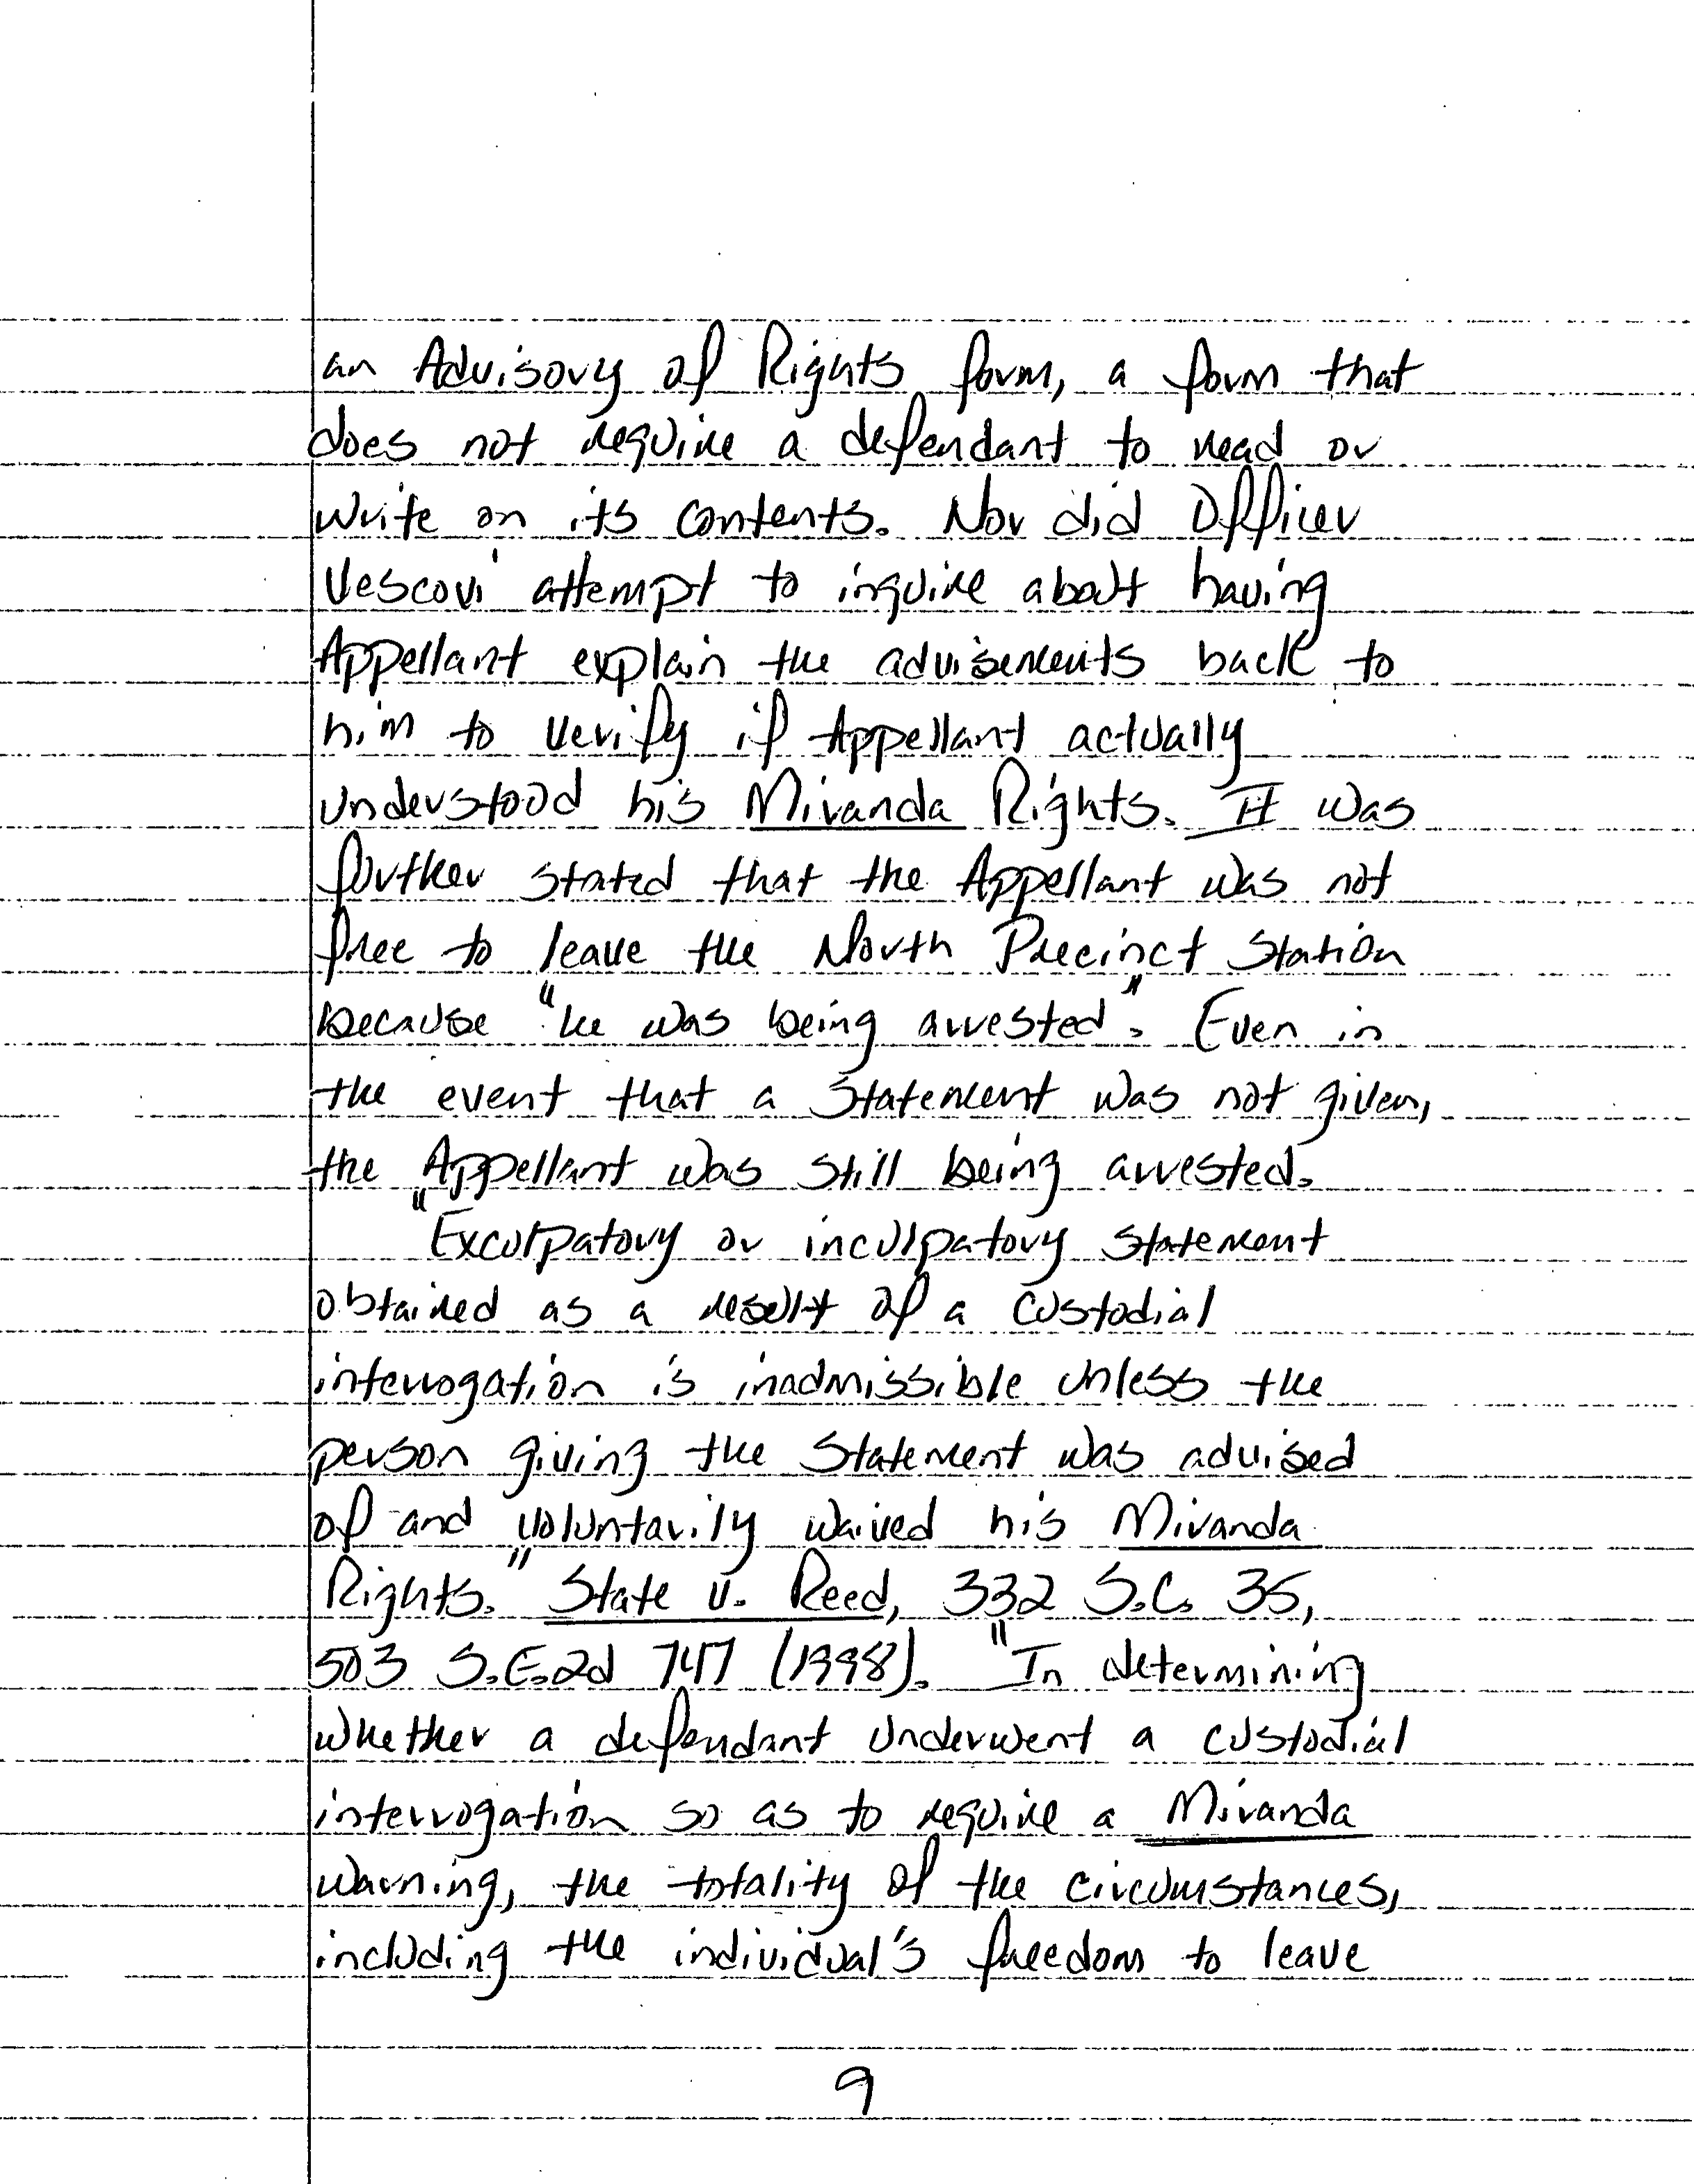 an Advisory of Rights form, a form that
does not require a defendant to read or
write on its contents. Nor did Officer
Vescovi attempt to inquire about having
Appellant explain the advisements back to
him to verify if Appellant actually
understood his Miranda Rights. It was
further stated that the Appellant was not
free to leave the North Precinct Station
because "he was being arrested". Even in
the event that a statement was not given,
the Appellant was still being arrested.
"Exculpatory or inculpatory statement
obtained as a result of a custodial
interrogation is inadmissible unless the
person giving the statement was advised
of and voluntarily waived his Miranda
Rights." State v. Reed, 332 S.C. 35,
503 S.E.2d 747 (1998). "In determining
whether a defendant underwent a custodial
interrogation so as to require a Miranda
warning, the totality of the circumstances,
including the individual's freedom to leave
9